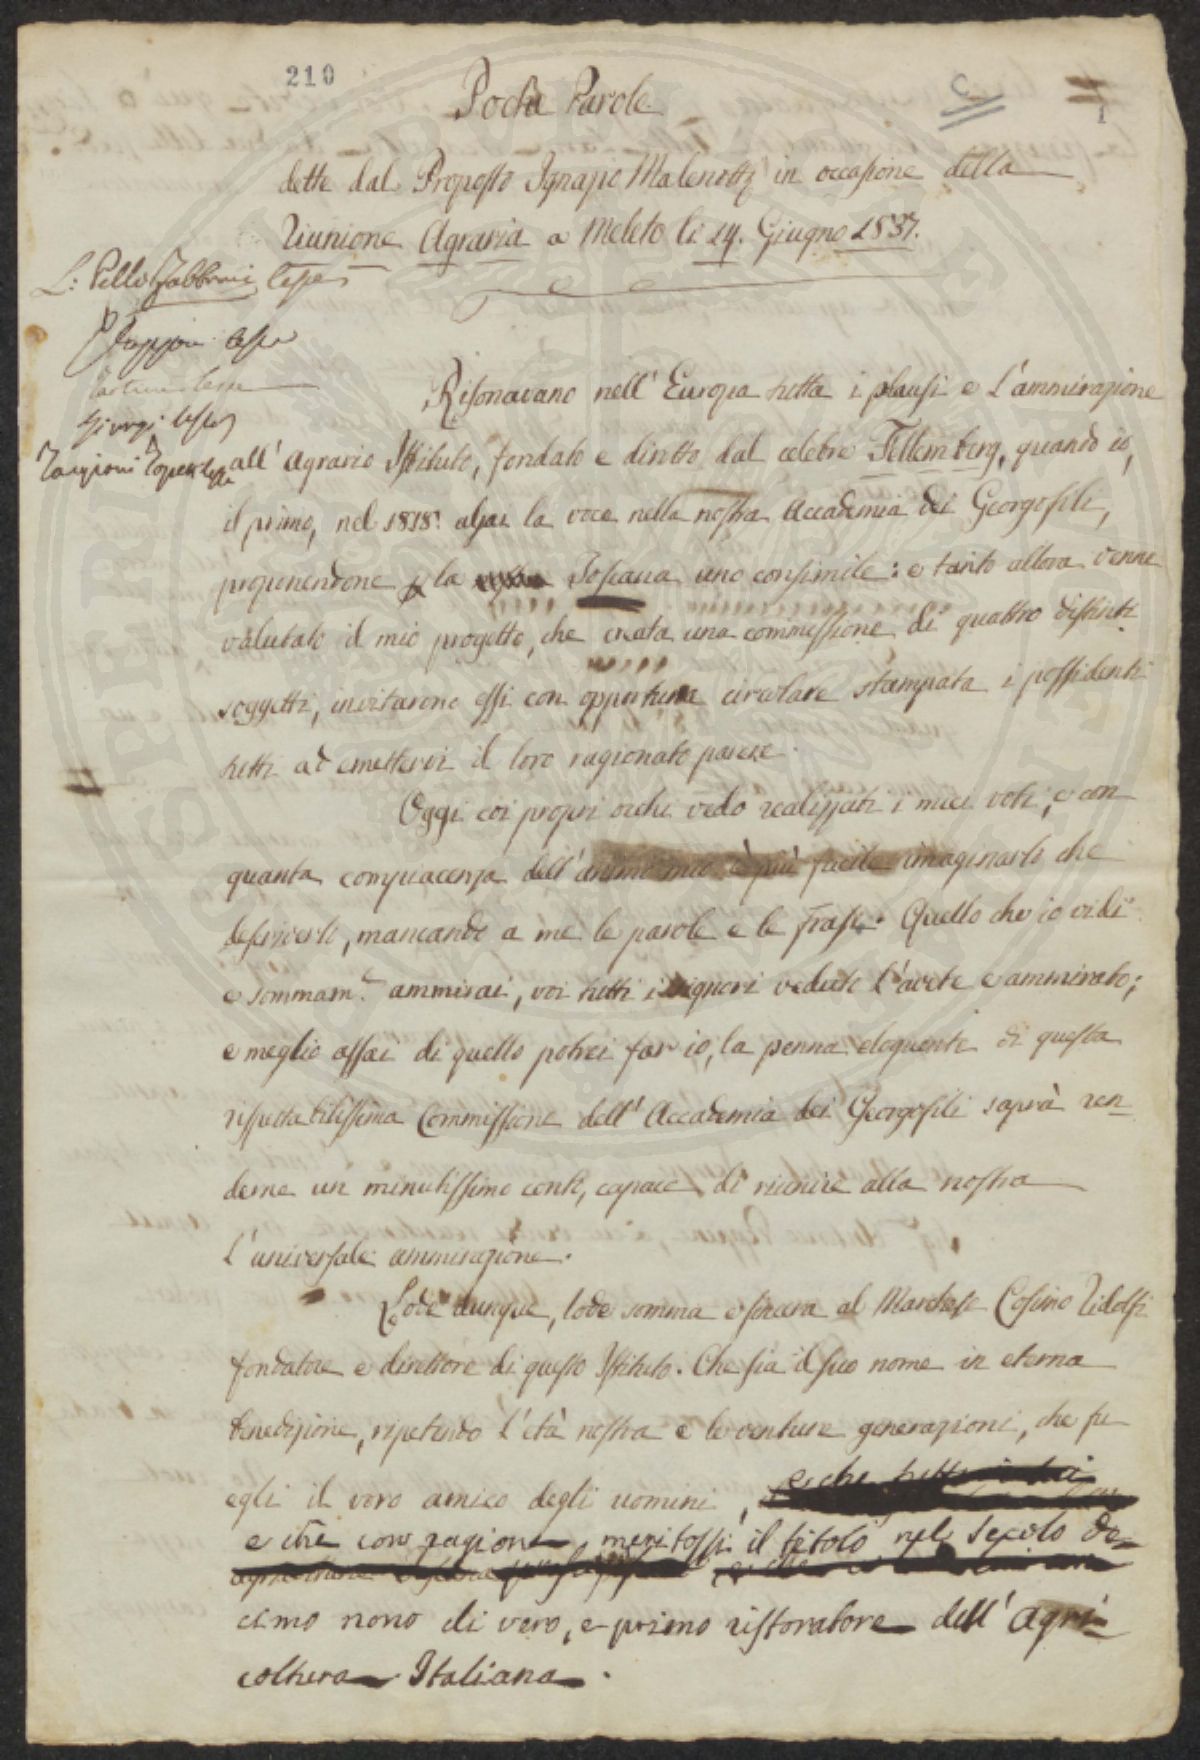 210
1
Poche Parole
dette dal Proposto Ignazio Malenotti in occasione della
Riunione Agraria a Meleto li 14. Giugno 1837.
L: Pelli Fabbroni lesse
lesse
lesse
Giorgi lesse
Targioni Tozzetti lesse
Risonavano nell' Europa tutta i plausi e l'ammirazione
all' Agrario Istituto, fondato e diretto dal celebre Fellemberg, quando io,
il primo, nel 1818. alzai la voce nella nostra Accademia dei Georgofili,
proponendone p la Toscana uno consimile: e tanto allora venne
valutato il mio progetto, che creata una commessione di quattro distinti
soggetti, invitarono essi con opportuna circolare stampata i possidenti
tutti ad emettervi il loro ragionato parere.
Oggi coi propri occhi vedo realizzati i miei voti; e con
quanta compiacenza dell' animo mio è più facile imaginarlo che
descriverlo, mancando a me le parole e le frasi. Quello che io vidi
e sommam.e ammirai, voi tutti i signori veduto l'avete e ammirato;
e meglio assai di quello potrei far io, la penna eloquente di questa
rispettabilissima Commissione dell' Accademia dei Georgofili saprà ren-
derne un minutissimo conto, capace di riunire alla nostra
l'universale ammirazione.
Lode dunque, lode somma e sincera al Marchese Cosimo Ridolfi
fondatore e direttore di questo Istituto. Che sia il suo nome in eterna
benedizione, ripetendo l'età nostra e le venture generazioni, che fu
egli il vero amico degli uomini,
e che con ragione meritossi il titolo nel secolo de-
cimo nono di vero, e primo ristoratore dell' Agri-
coltura Italiana.